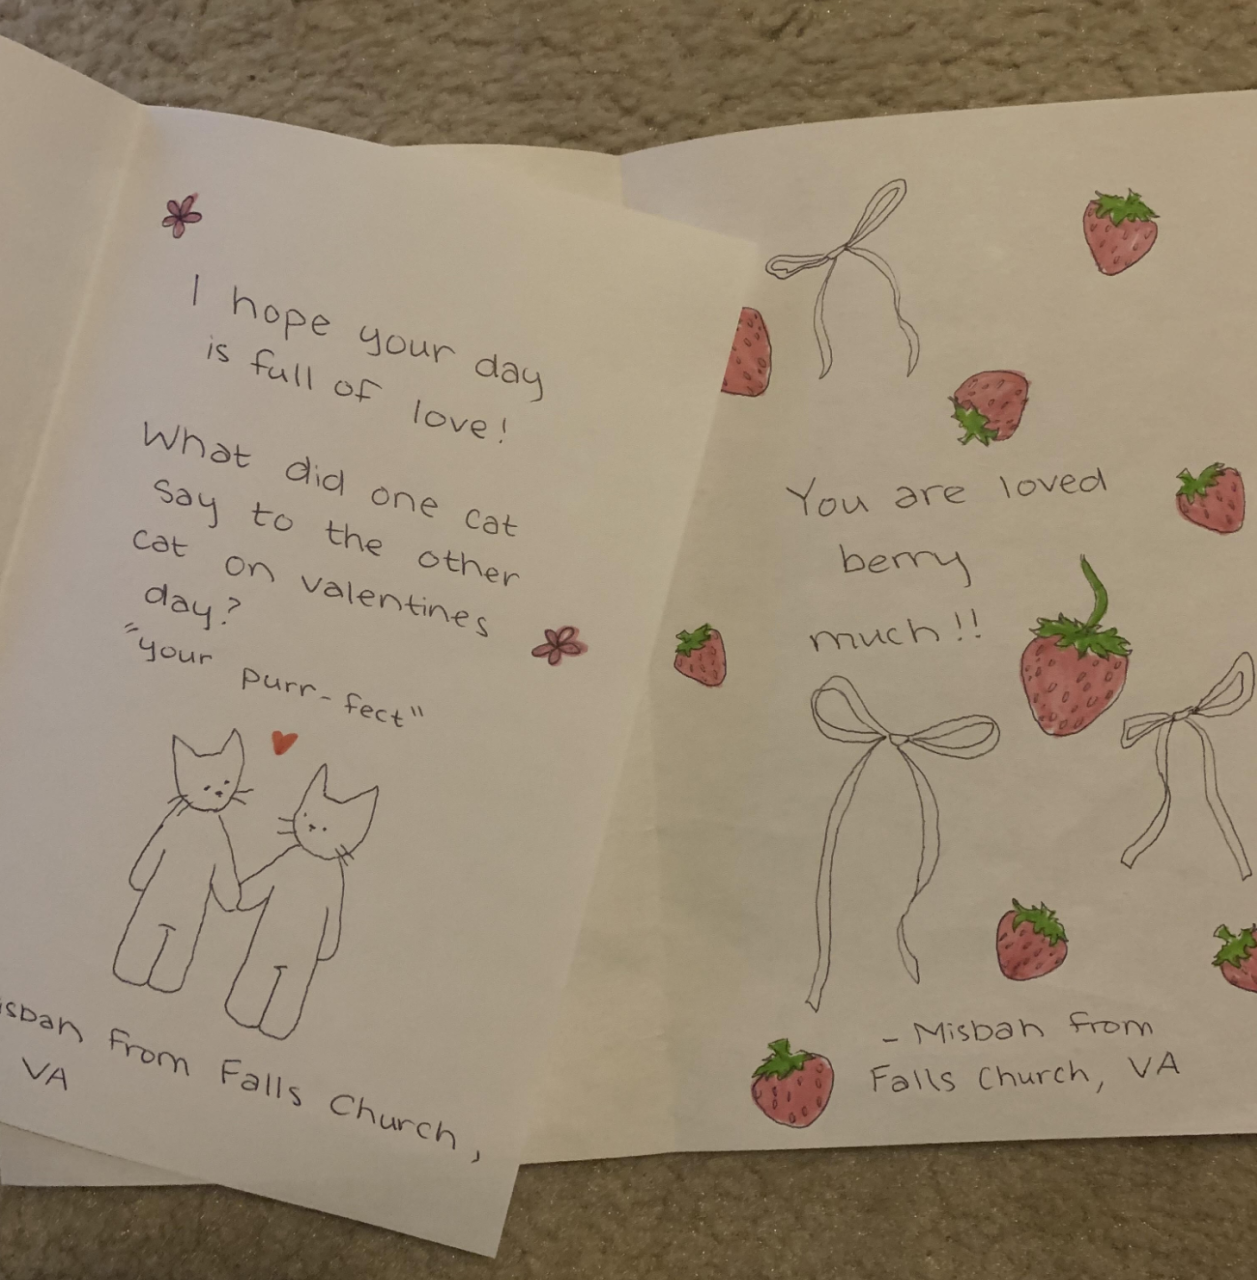 I hope your day
is full of love!
What did one cat
say to the other
cat on valentines
day?
"your purr-fect"
from Falls Church,
VA
You are loved
berry
much!!
- Misbah from
Falls Church, VA